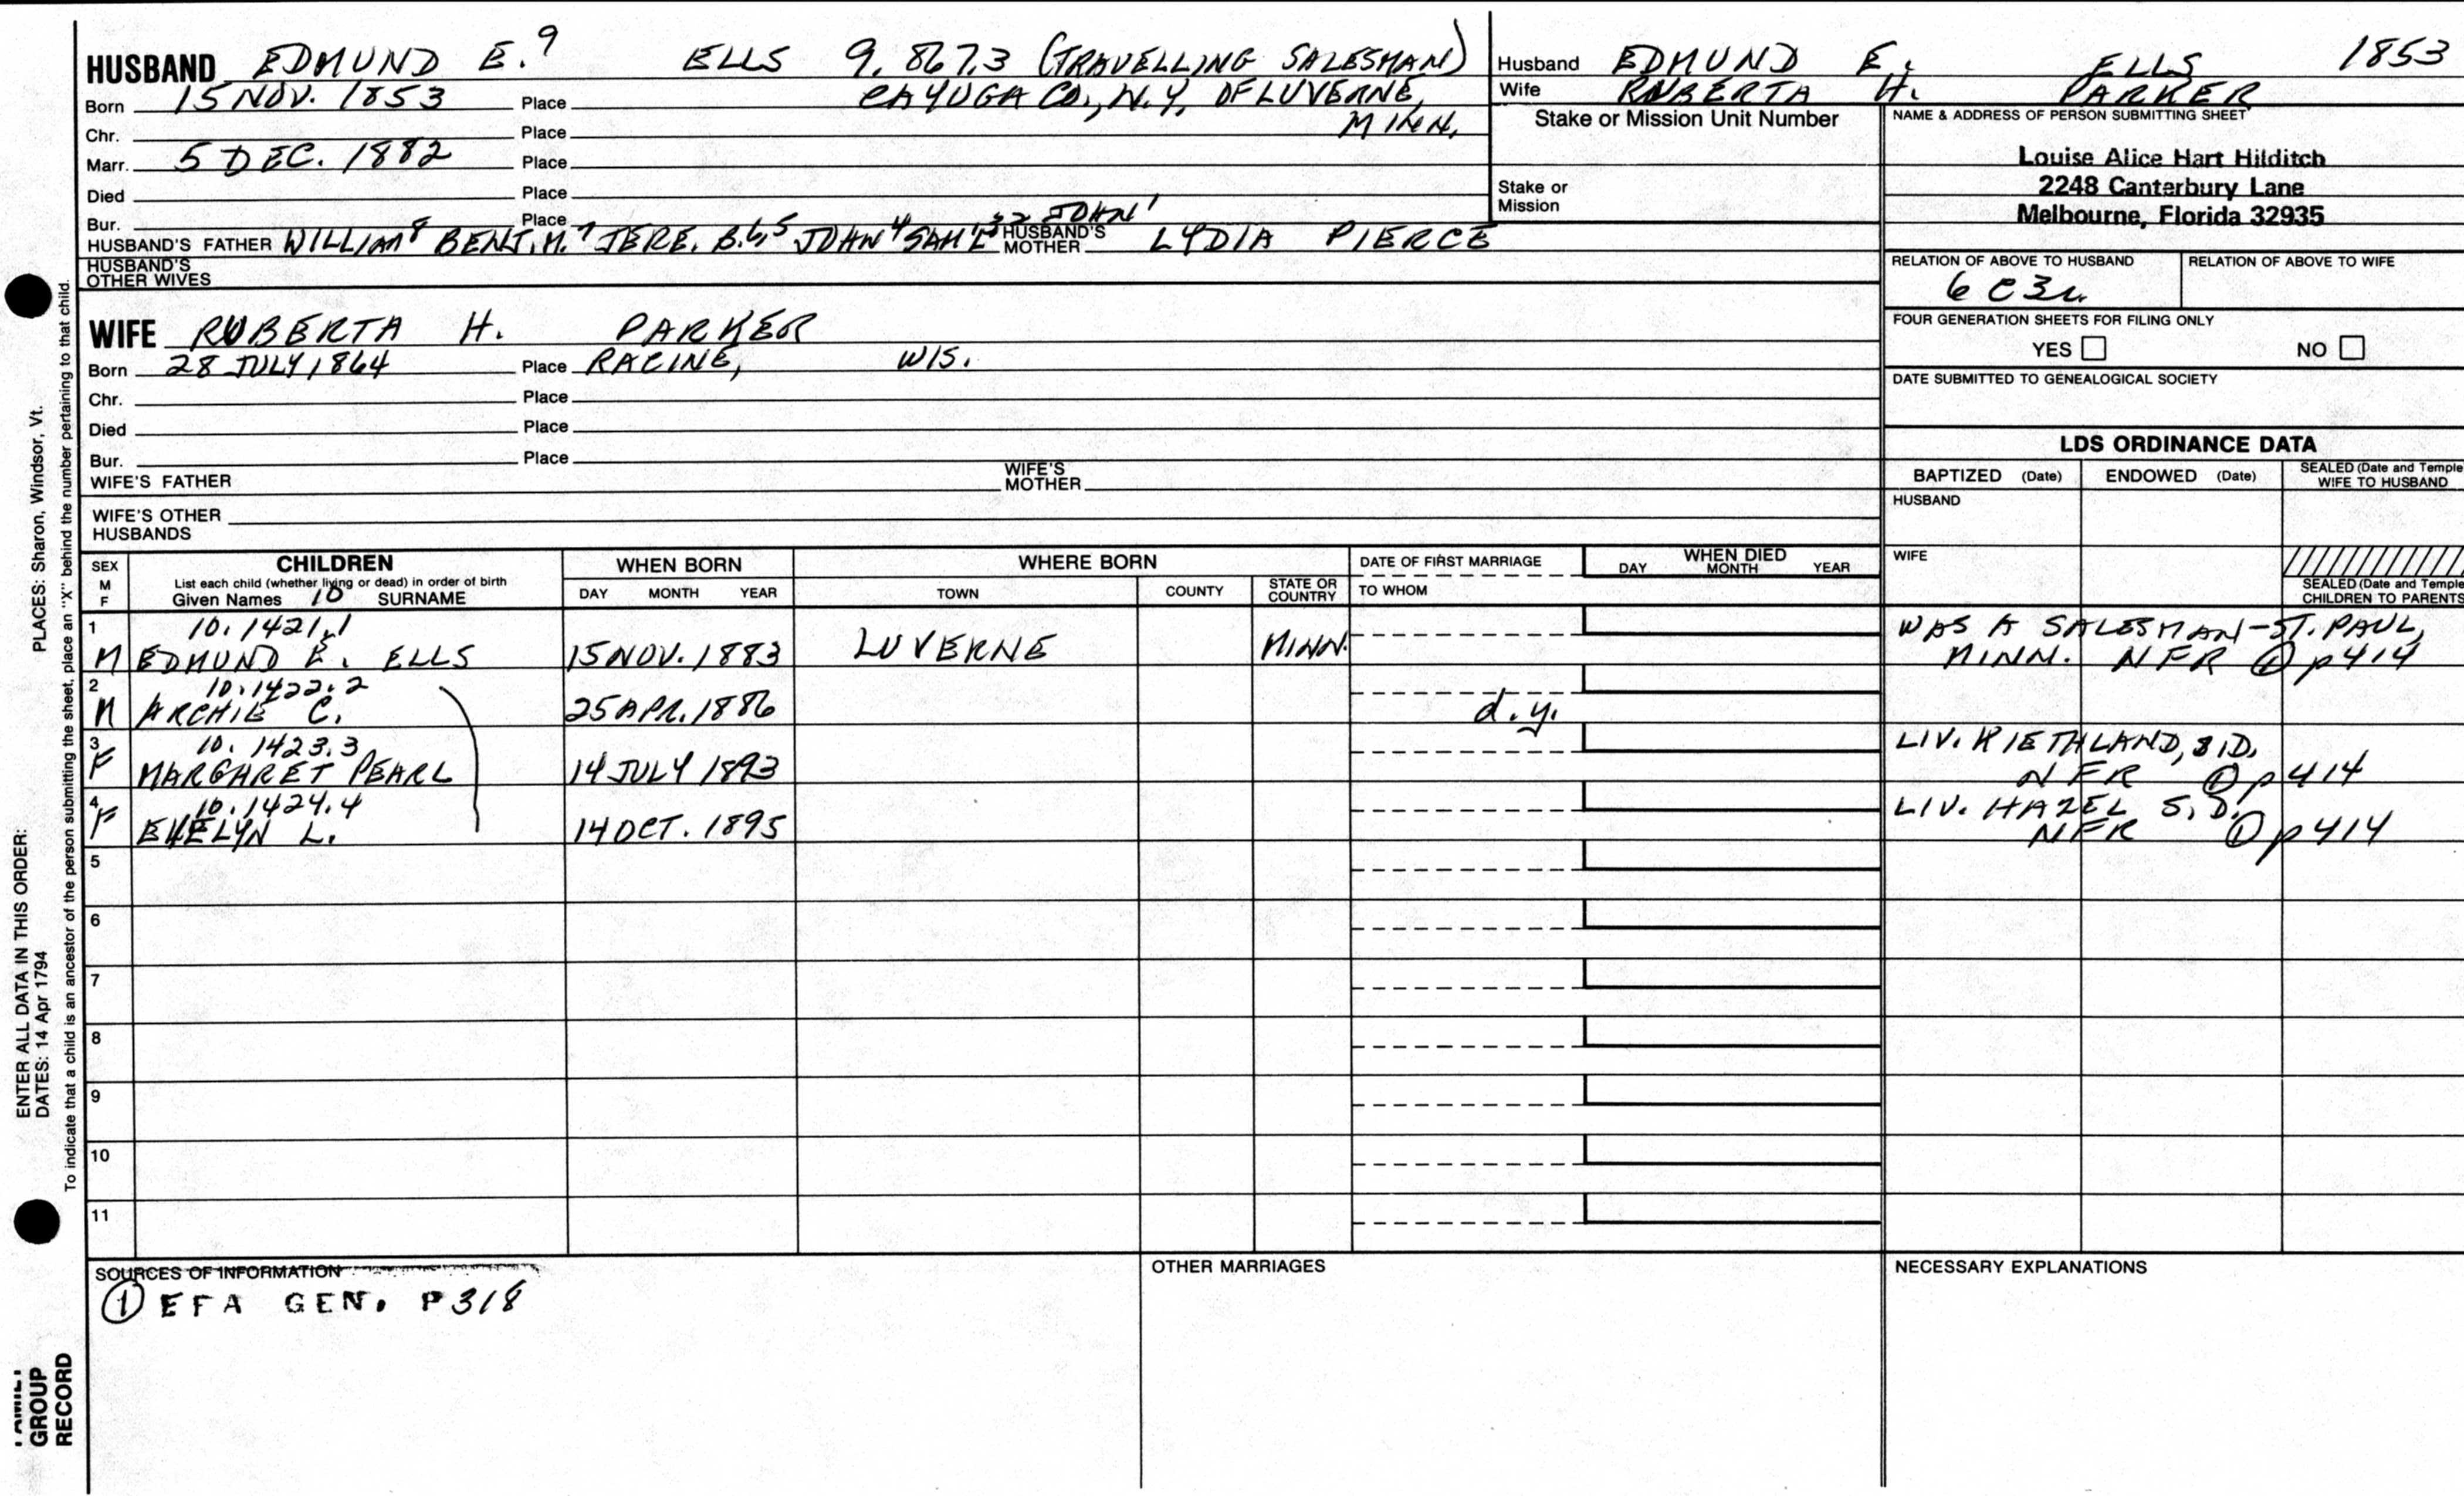 HUSBAND EDMUND E.⁹ ELLS 9.867.3 (TRAVELLING SALESMAN)
Born 15 NOV. 1853 Place CAYUGA CO., N.Y. OF LUVERNE,
MINN.
Chr. Place
Marr. 5 DEC. 1882 Place
Died Place
Bur. Place
HUSBAND'S FATHER WILLIAM⁸ BENJ. M.⁷ JERE. B.⁶,⁵ JOHN⁴ SAM'L³² JOHN¹ HUSBAND'S MOTHER LYDIA PIERCE
HUSBAND'S OTHER WIVES
WIFE ROBERTA H. PARKER
Born 28 JULY 1864 Place RACINE, WIS.
Chr. Place
Died Place
Bur. Place
WIFE'S FATHER WIFE'S MOTHER
WIFE'S OTHER HUSBANDS
Husband EDMUND E. ELLS 1853
Wife ROBERTA H. PARKER
Stake or Mission Unit Number
Stake or Mission
NAME & ADDRESS OF PERSON SUBMITTING SHEET
Louise Alice Hart Hilditch
2248 Canterbury Lane
Melbourne, Florida 32935
RELATION OF ABOVE TO HUSBAND RELATION OF ABOVE TO WIFE
6C3r
FOUR GENERATION SHEETS FOR FILING ONLY
YES NO
DATE SUBMITTED TO GENEALOGICAL SOCIETY
LDS ORDINANCE DATA
BAPTIZED (Date) ENDOWED (Date) SEALED (Date and Temple WIFE TO HUSBAND
HUSBAND
WIFE
SEALED (Date and Temple
CHILDREN TO PARENTS
SEX M F CHILDREN WHEN BORN WHERE BORN DATE OF FIRST MARRIAGE WHEN DIED
List each child (whether living or dead) in order of birth
Given Names 10 SURNAME DAY MONTH YEAR TOWN COUNTY STATE OR COUNTRY TO WHOM DAY MONTH YEAR
1 10.1421.1 WAS A SALESMAN-ST. PAUL,
M EDMUND E. ELLS 15 NOV. 1883 LUVERNE MINN. MINN. NFR ① p414
2 10.1422.2
M ARCHIE C. 25 APR. 1886 d.y.
3 10.1423.3 LIV. S.D.
F MARGARET PEARL 14 JULY 1893 NFR ① p414
4 10.1424.4 LIV. HAZEL S.D.
F EVELYN L. 14 OCT. 1895 NFR ① p414
5
6
7
8
9
10
11
SOURCES OF INFORMATION OTHER MARRIAGES NECESSARY EXPLANATIONS
① EFA GEN. P318
PLACES: Sharon, Windsor, Vt.
ENTER ALL DATA IN THIS ORDER:
DATES: 14 Apr 1794
To indicate that a child is an ancestor of the person submitting the sheet, place an "X" behind the number pertaining to that child.
FAMILY
GROUP
RECORD